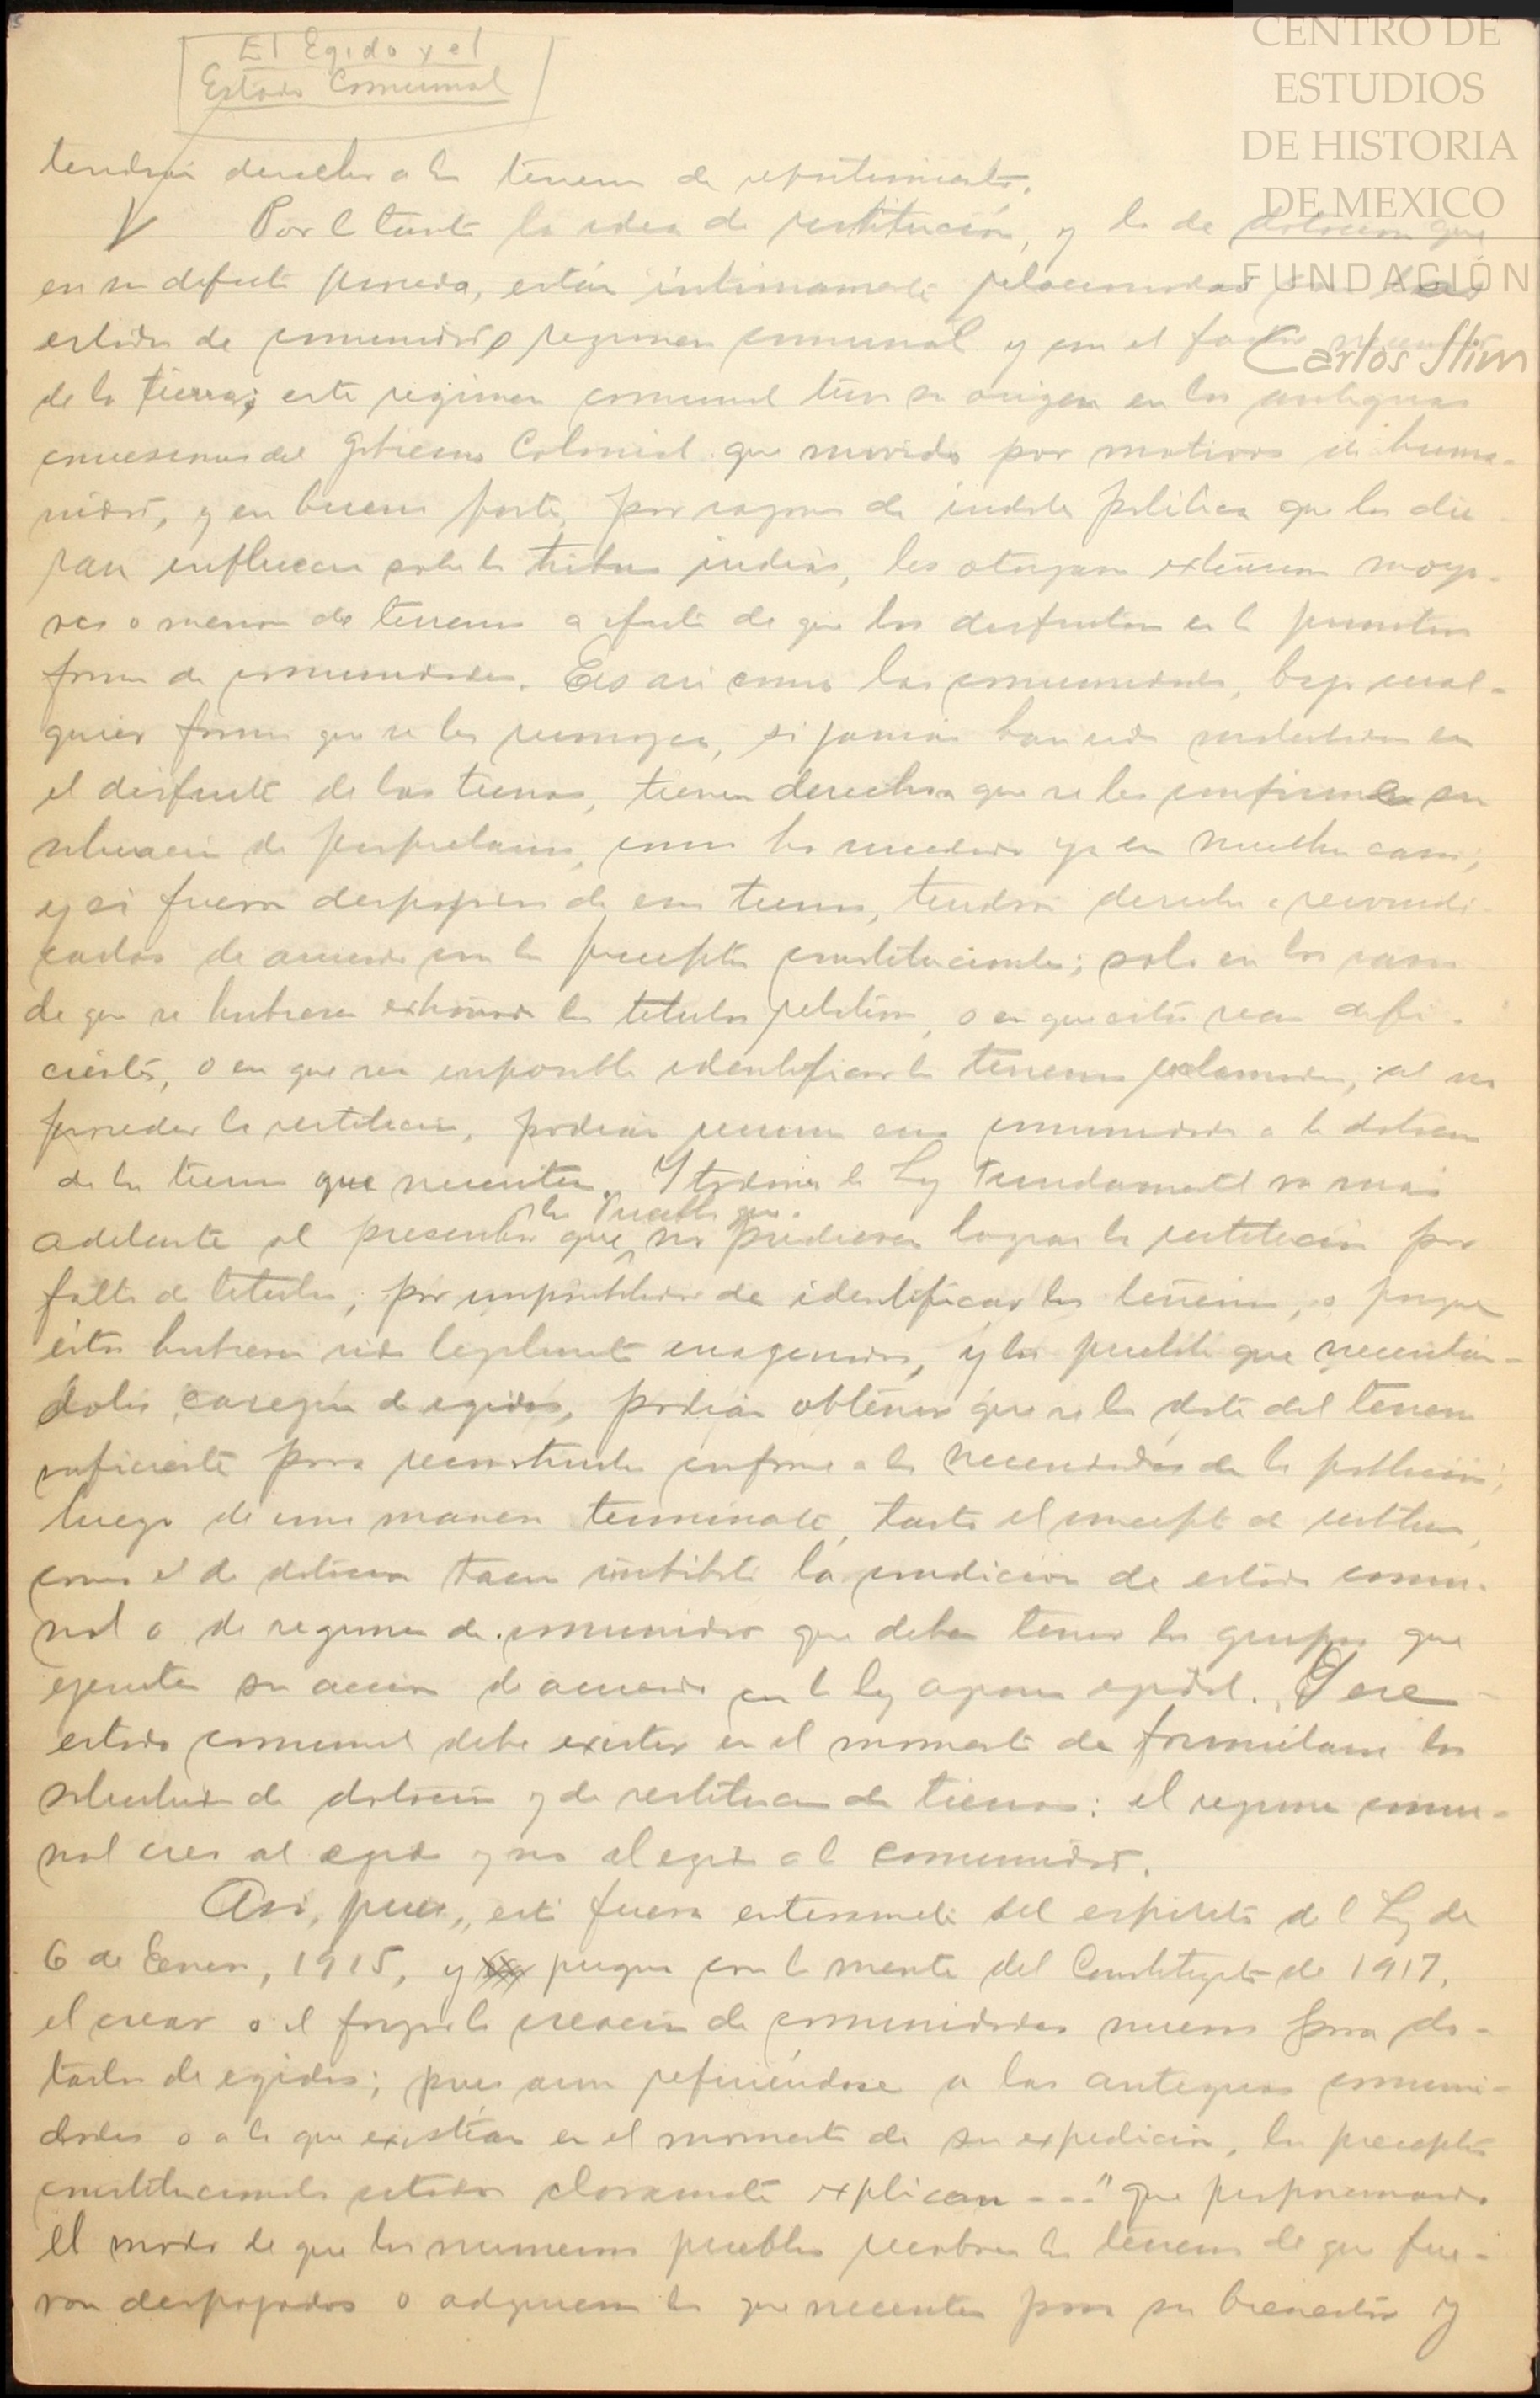 El Egido y el
Estado Comunal
CENTRO DE
ESTUDIOS
DE HISTORIA
DE MEXICO
FUNDACIÓN
Carlos Slim
tendrán derecho a los terrenos de repartimiento.
Por lo tanto la idea de restitución, y la de dotación que
en su defecto proceda, están íntimamente relacionadas con
estado de comunidad, regimen comunal y con el
de la tierra; este regimen comunal tuvo su origen en las antiguas
concesiones del Gobierno Colonial que movido por motivos de huma-
nidad, y en buena parte, por razones de indole politica que les die-
ran influencia sobre las tribus indias, les otorgaron extensiones mayo-
res o menores de terrenos a efecto de que los disfrutaran en la primitiva
forma de comunidades. Es asi como las comunidades, bajo cual-
quier forma que se les reconozca, si jamás han sido molestadas en
el disfrute de las tierras, tienen derecho a que se les confirme en su
situacion de propietarios, como ha sucedido ya en muchos casos;
y si fueron despojados de esas tierras, tendrán derecho a reivindi-
carlas de acuerdo con los preceptos constitucionales; solo en los casos
de que se hubieran extraviado los titulos relativos, o en que estos sean defi-
cientes, o en que sea imposible identificar los terrenos reclamados, al no
proceder la restitución, podrán recurrir esas comunidades a la dotacion
de las tierras que necesiten. Y todavía la Ley Fundamental va mas
adelante al prescribir que los Pueblos que no pudieren lograr la restitución por
falta de titulos, por imposibilidad de identificar los terrenos, o porque
éstos hubieren sido legalmente enagenados, y los pueblos que necesitán-
dolos, carezcan de egidos, podrán obtener que se les dote del terreno
suficiente para reconstruirlos conforme a las necesidades de la población;
luego de una manera terminante, tanto el concepto de restitucion,
como el de dotacion traen imbíbita la condición de estado comu-
nal o de regimen de comunidad que deben tener los grupos que
ejerciten su accion de acuerdo con la ley agraria egidal. Y ese
estado comunal debe existir en el momento de formularse las
solicitudes de dotación y de restitucion de tierras: el regimen comu-
nal crea al egido y no el egido a la comunidad.
Así, pues, está fuera enteramente del espiritu de la Ley de
6 de Enero, 1915, y pugna con la mente del Constituyente de 1917,
el crear o el forzar la creación de comunidades nuevas para do-
tarlas de egidos; pues aun refiriéndose a las antiguas comuni-
dades o a las que existían en el momento de su expedicion, los preceptos
constitucionales citados claramente explican - - - " que proporcionando
el modo de que los numerosos pueblos recobren los terrenos de que fue-
ron despojados o adquieran los que necesiten para su bienestar y